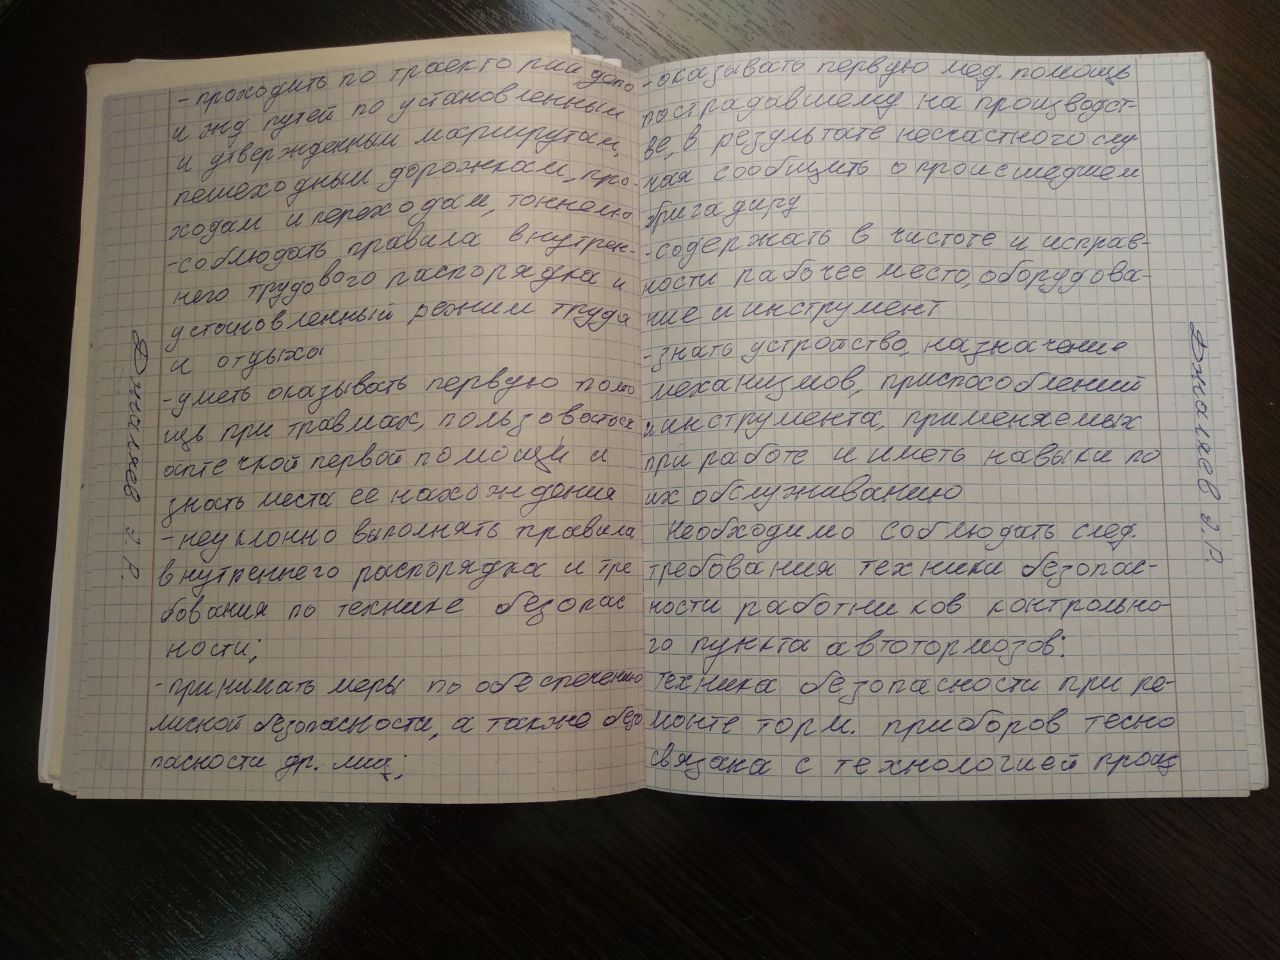 - проходить по траектории, депо
и жд путей по установленным
и утвержденным маршрутам,
пешеходным дорожкам, про-
ходам и переходам, тоннелю
- соблюдать правила внутрен-
него трудового распорядка и
установленный режим труда
и отдыха
- уметь оказывать первую помо
щь при травмах, пользоваться
аптечкой первой помощи и
знать места ее нахождения
- неуклонно выполнять правила
внутреннего распорядка и тре
бования по технике безопас
ности;
- принимать меры по обеспечению
личной безопасности, а также безо
пасности др. лиц;
- оказывать первую мед. помощь
пострадавшему на производст-
ве, в результате несчастного слу
чая сообщить о происшедшем
бригадиру
- содержать в чистоте и исправ-
ности рабочее место, оборудова-
ние и инструмент
- знать устройство, назначение
механизмов, приспособлений
и инструмента, применяемых
при работе и иметь навыки по
их обслуживанию
Необходимо соблюдать след.
требования техники безопас-
ности работников контрольно-
го пункта автотормозов:
Техника безопасности при ре-
монте торм. приборов тесно
связана с технологией проц